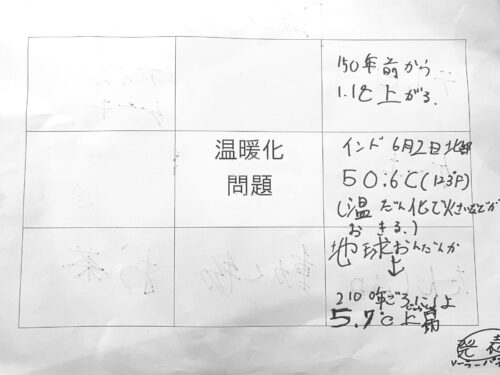 150年前から
1.1℃上がる.
温暖化
問題
インド 6月2日北部
50.6C(123°F)
(温だん化で火さいなどが
おきる.)
地球おんだんか
↓
2100年ごろには
5.7℃上昇
発表
ソーラーパネ